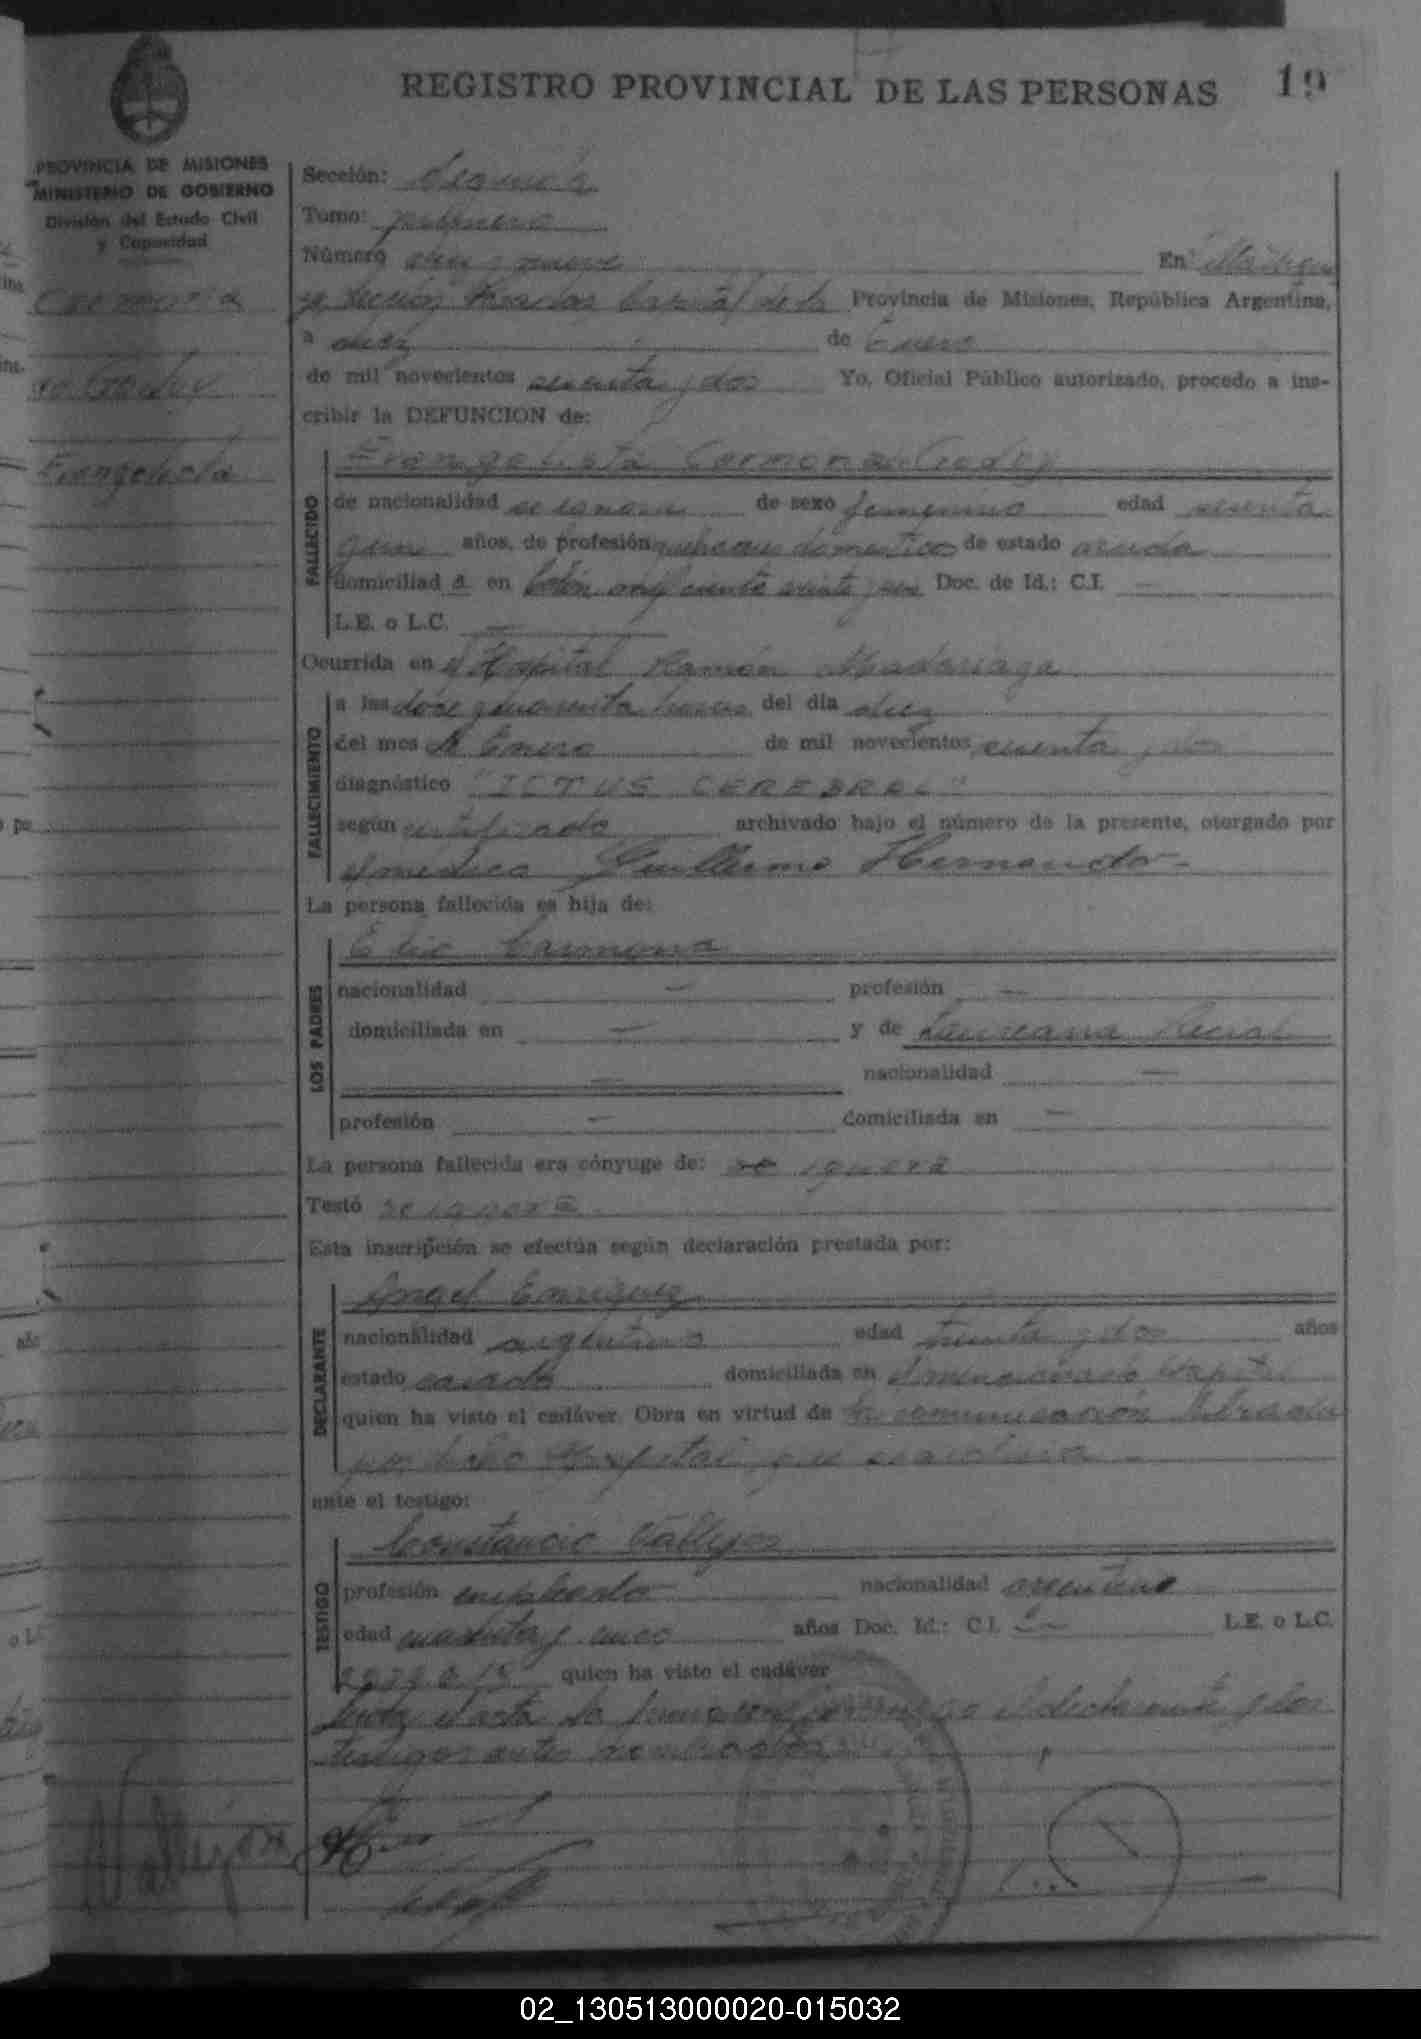 REGISTRO PROVINCIAL DE LAS PERSONAS 19
PROVINCIA DE MISIONES
MINISTERIO DE GOBIERNO
División del Estado Civil
y Capacidad
Carmona
Godoy
Evangelista
Sección: Segunda
Tomo: primero
Número diez y nueve En
Posadas Capital de la Provincia de Misiones, República Argentina,
a diez de Enero
de mil novecientos sesenta y dos Yo, Oficial Público autorizado, procedo a ins-
cribir la DEFUNCION de:
FALLECIDO
Evangelista Carmona Godoy
de nacionalidad de sexo femenino edad sesenta
años, de profesión quehaceres domesticos de estado viuda
domiciliad a en Colón ciento veinte y Doc. de Id.: C.I. —
L.E. o L.C. —
Ocurrida en el Hospital Ramón Madariaga
FALLECIMIENTO
a las doce y cuarenta horas del día diez
del mes de Enero de mil novecientos sesenta y dos
diagnóstico "ICTUS CEREBRAL"
según certificado archivado bajo el número de la presente, otorgado por
el medico Guillermo Hernando -
La persona fallecida es hija de:
LOS PADRES
Elio Carmona
nacionalidad — profesión —
domiciliada en — y de Laureana
— nacionalidad —
profesión — domiciliada en —
La persona fallecida era cónyuge de: se ignora
Testó se ignora
Esta inscripción se efectúa según declaración prestada por:
DECLARANTE
Angel Enriquez
nacionalidad argentino edad treinta y dos años
estado casado domiciliada en el mencionado Hospital
quien ha visto el cadáver. Obra en virtud de la comunicación librada
por dicho Hospital que se archiva —
ante el testigo:
TESTIGO
Constancio Vallejos
profesión empleado nacionalidad argentino
edad cuarenta y cinco años Doc. Id.: C.I. — L.E. o L.C.
quien ha visto el cadáver
Leída el acta la firman conmigo el declarante y los
testigos antes nombrados
Vallejos
02_130513000020-015032